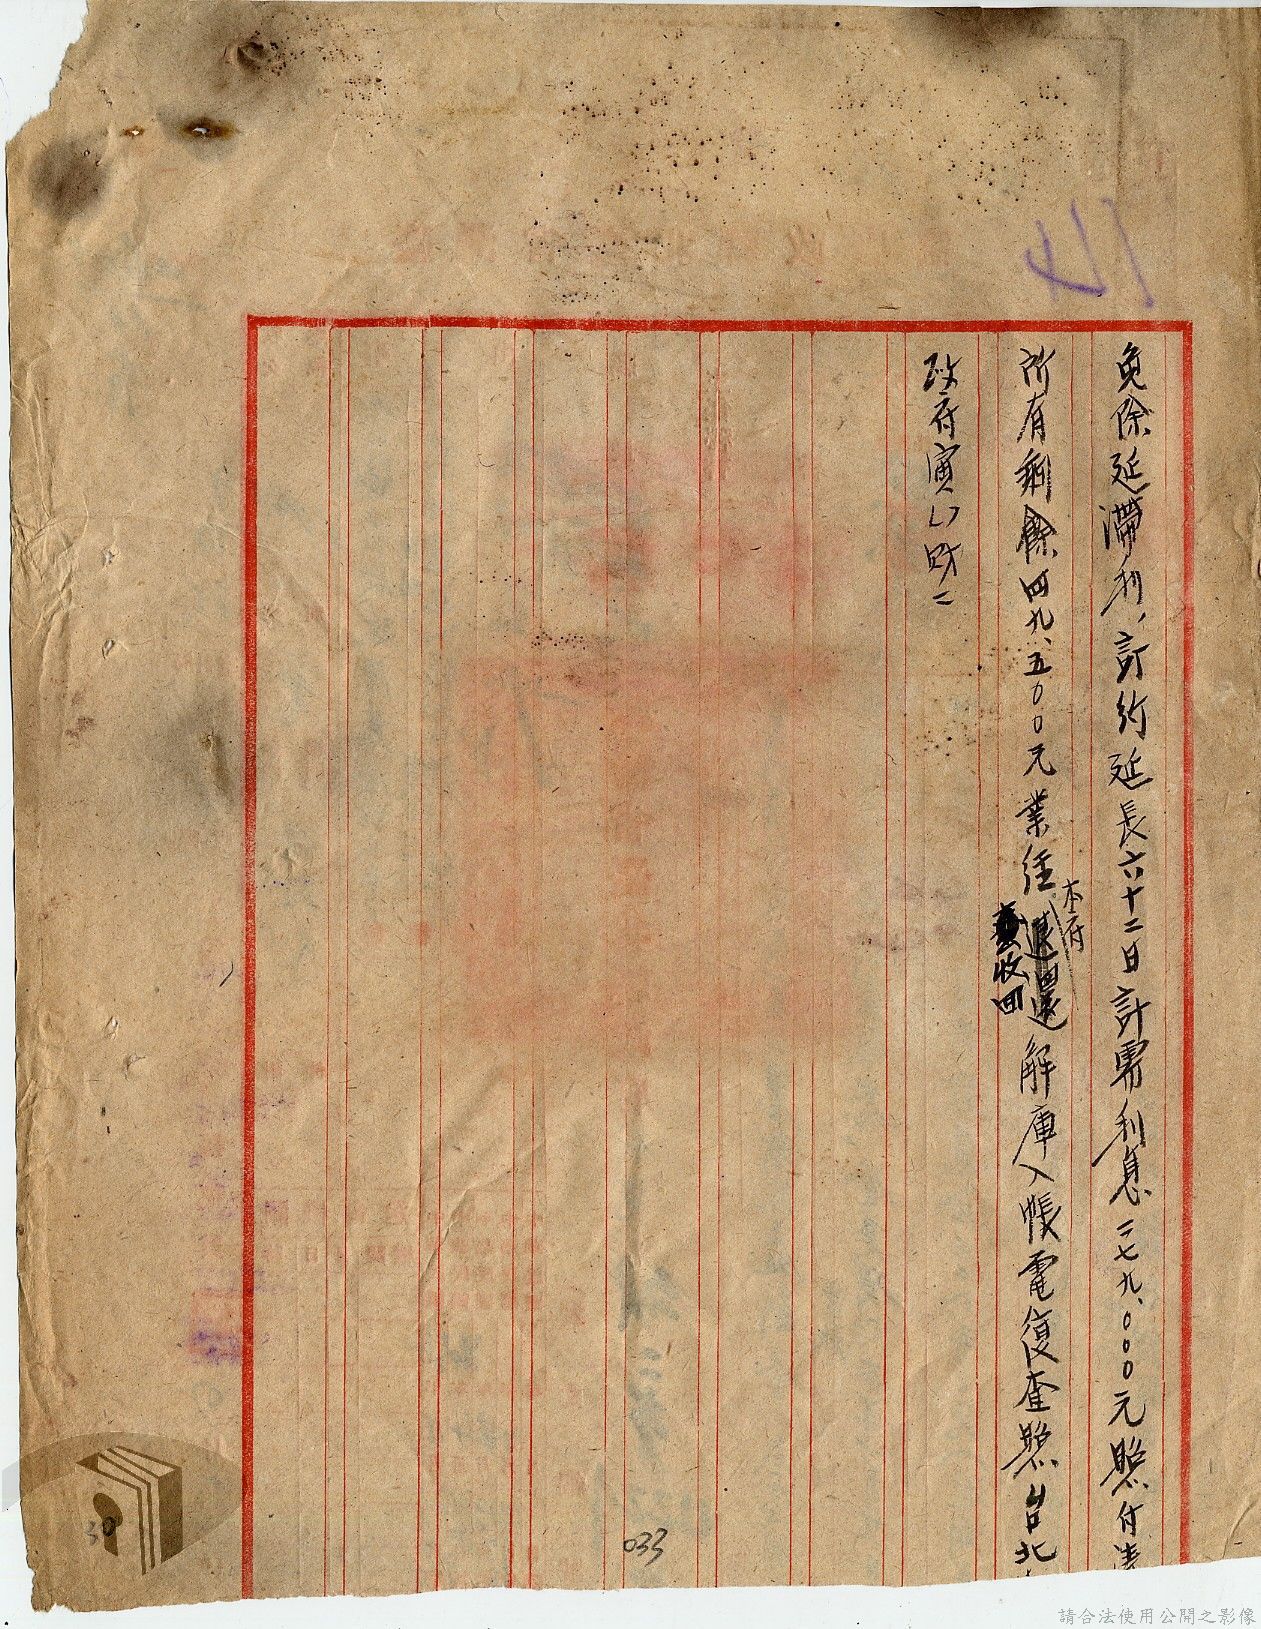 114
免除延滯利，訂約延長六十二日計需利息二七九、〇〇〇元照付清
所有剩餘四九、五〇〇元業經本府收回解庫入帳電復查照台北
政府寅 財二
033
30
請合法使用公開之影像